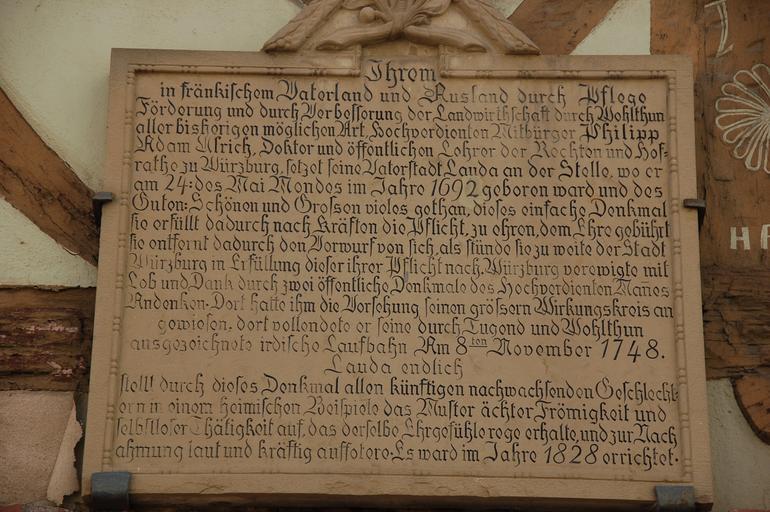 Ihrem
in fränkischem Vaterland und Ausland durch Pflege
Förderung und durch Verbesserung der Landwirthschaft durch Wohlthun
aller bisherigen möglichen Art, Hochverdienten Mitbürger Philipp
Adam Ulrich, Doktor und öffentlichen Lehrer der Rechten und Hof-
rathe zu Würzburg, setzet seine Vaterstadt Lauda an der Stelle, wo er
am 24: des Mai Mondes im Jahre 1692 geboren ward und des
Guten: Schönen und Grossen vieles gethan, dieses einfache Denkmal
sie erfüllt dadurch nach Kräften die Pflicht, zu ehren, dem Ehre gebührt
sie entfernt dadurch den Vorwurf von sich, als stünde sie zu weite der Stadt
Würzburg in Erfüllung dieser ihrer Pflicht nach, Würzburg verewigte mit
Lob und Dank durch zwei öffentliche Denkmale des Hochverdienten Mañes
Andenken. Dort hatte ihm die Vorsehung seinen grössern Wirkungskreis an
gewiesen, dort vollendete er seine durch Tugend und Wohlthun
ausgezeichnete irdische Laufbahn Am 8ten November 1748.
Lauda endlich
stellt durch dieses Denkmal allen künftigen nachwachsenden Geschlecht-
ern in einem heimischen Beispiele das Muster ächter Frömigkeit und
selbstloser Thätigkeit auf, das derselbe Ehrgefühle rege erhalte, und zur Nach
ahmung laut und kräftig auffotere. Es ward im Jahre 1828 errichtet.